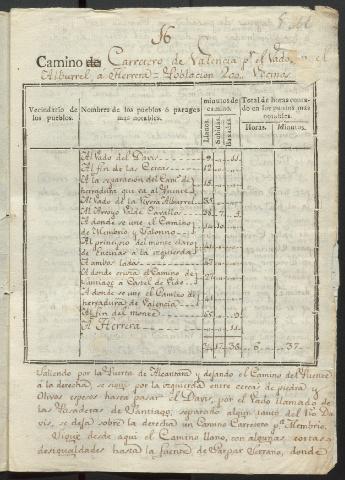 16
Camino de Carretero de Valencia pr. el Vado
Alburrel, a Herrera = Poblacion 200 Vecinos
Vecindario de los pueblos.
Nombres de los pueblos ó parages mas notables.
minutos de camino.
Llanos.
Subidas.
Bajadas.
Total de horas contado en los puntos mas notables.
Horas.
Minutos.
Al Vado del Davis
Al fin de las Cercas
A la separacion del Camo. de
herradura que va al Puente
Al Vado de la Rivera Alburrel
Al Arroyo Valde Cavallos
A donde se une el Camino
de Membrio y Salorino
Al principio del monte claro
de Encinas a la izquierda
A ambos lados
A donde cruza el Camino de
Santiago a Castel de Vide
A donde se une el Camino de
herradura de Valencia
Al fin del monte
A Herrera
6 37
Saliendo por la Puerta de Alcantara y dejando el Camino del Puente
a la derecha, se sigue por la izquierda entre cercas de piedra y
Olivos espesos hasta pasar el Davis, por el Vado llamado de
las Pasaderas de Santiago; separado algun tanto del Rio Da-
vis, se deja sobre la derecha un Camino Carretero pa. Membrio.
Sigue desde aqui el Camino llano, con algunas cortas
desigualdades hasta la fuente de Gaspar Serrano, donde